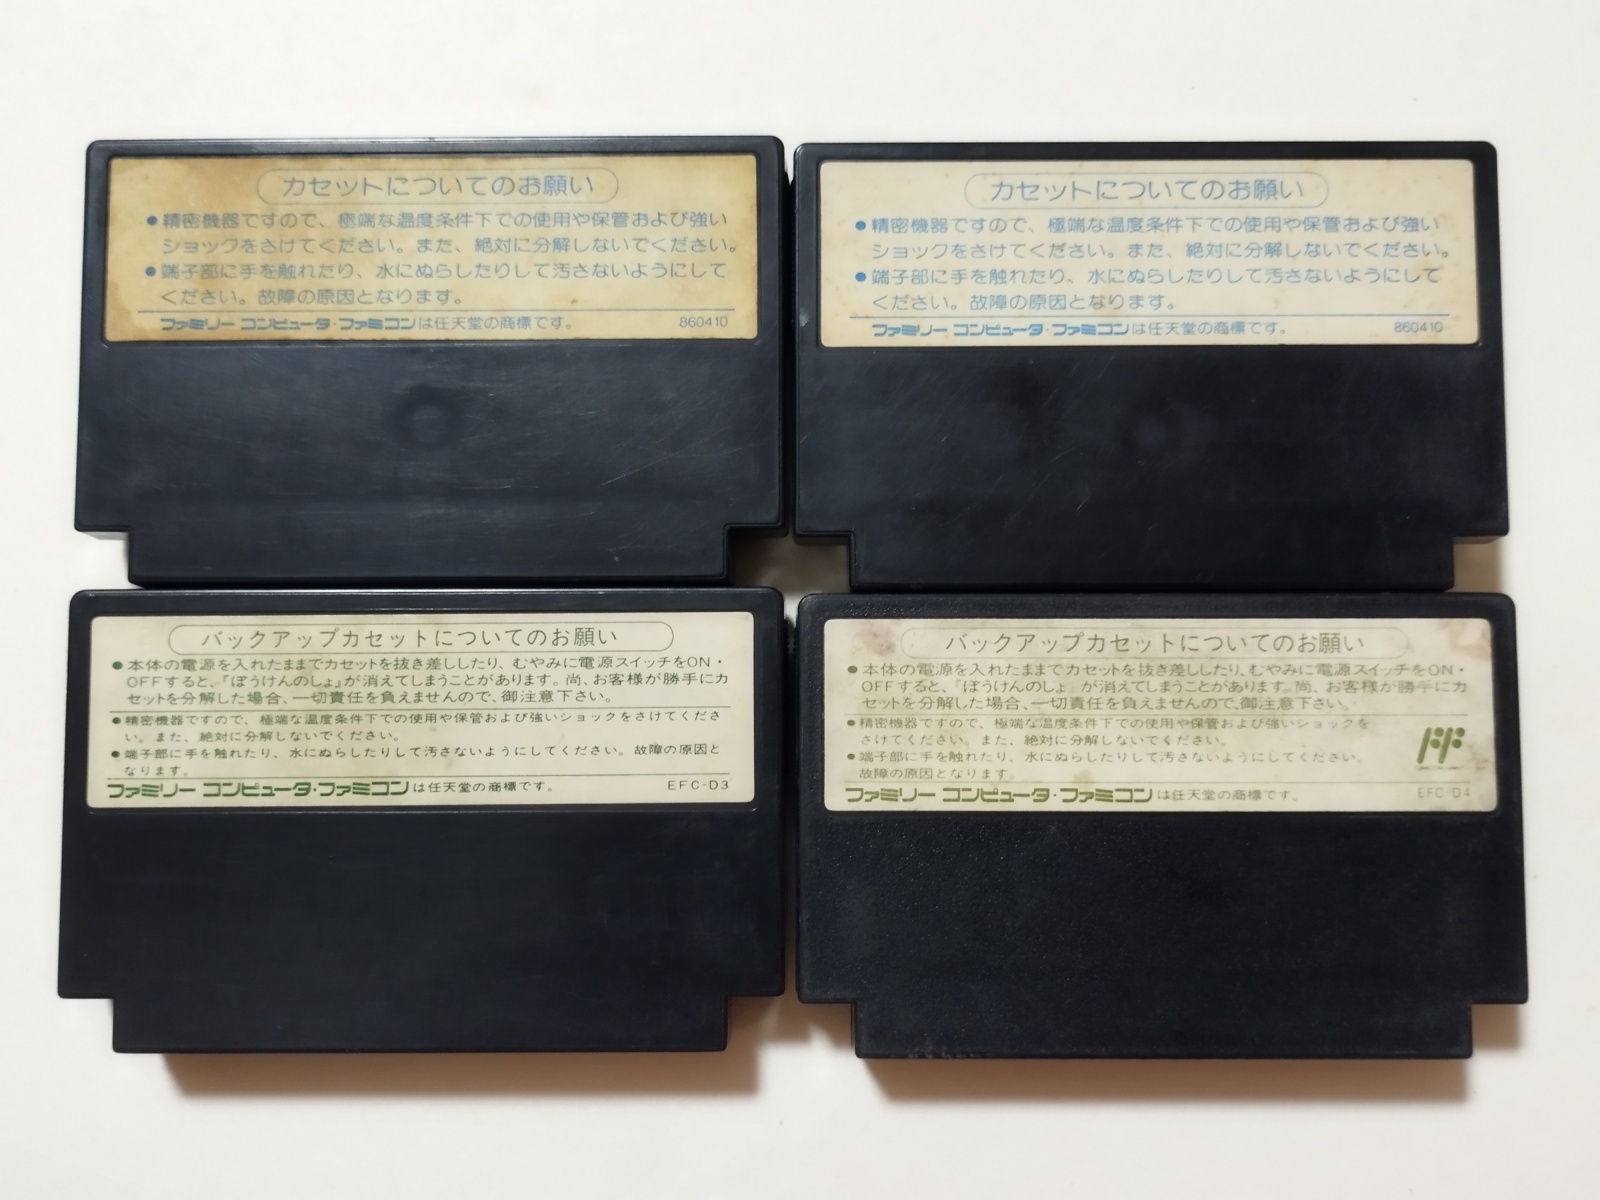 カセットについてのお願い
●精密機器ですので、極端な温度条件下での使用や保管および強い
ショックをさけてください。また、絶対に分解しないでください。
●端子部に手を触れたり、水にぬらしたりして汚さないようにして
ください。故障の原因となります。
ファミリー コンピュータ・ファミコンは任天堂の商標です。 860410
カセットについてのお願い
●精密機器ですので、極端な温度条件下での使用や保管および強い
ショックをさけてください。また、絶対に分解しないでください。
●端子部に手を触れたり、水にぬらしたりして汚さないようにして
ください。故障の原因となります。
ファミリー コンピュータ・ファミコンは任天堂の商標です。 860410
バックアップカセットについてのお願い
●本体の電源を入れたままでカセットを抜き差ししたり、むやみに電源スイッチをON・
OFFすると、「ぼうけんのしょ」が消えてしまうことがあります。尚、お客様が勝手にカ
セットを分解した場合、一切責任を負えませんので、御注意下さい。
●精密機器ですので、極端な温度条件下での使用や保管および強いショックをさけてくださ
い。また、絶対に分解しないでください。
●端子部に手を触れたり、水にぬらしたりして汚さないようにしてください。故障の原因と
なります。
ファミリー コンピュータ・ファミコンは任天堂の商標です。 EFC-D3
バックアップカセットについてのお願い
●本体の電源を入れたままでカセットを抜き差ししたり、むやみに電源スイッチをON・
OFFすると、「ぼうけんのしょ」が消えてしまうことがあります。尚、お客様が勝手にカ
セットを分解した場合、一切責任を負えませんので、御注意下さい。
●精密機器ですので、極端な温度条件下での使用や保管および強いショックを
さけてください。また、絶対に分解しないでください。
●端子部に手を触れたり、水にぬらしたりして汚さないようにしてください。
故障の原因となります。
FF
ファミリー コンピュータ・ファミコンは任天堂の商標です。 EFC-D4